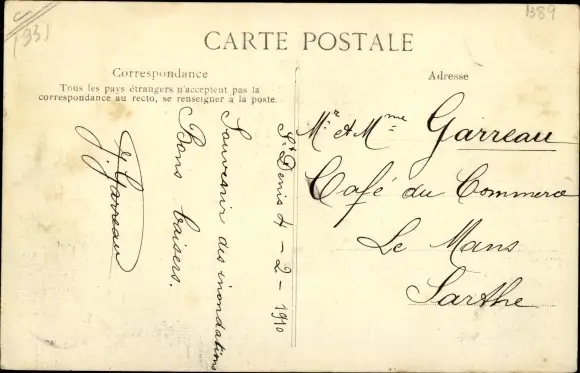 (931
B89
CARTE POSTALE
Correspondance
Tous les pays étrangers n'acceptent pas la
correspondance au recto, se renseigner à la poste.
Adresse
St Denis 4 - 2 - 1910
Souvenir des inondations
Bons baisers.
J. Garreau
Mr et Mme Garreau
Café du Commerce
Le Mans
Sarthe